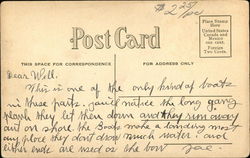 # 2 25/
Post Card
Place Stamp
Here
United States
Canada and
Mexico
one cent.
Foreign
Two Cents.
THIS SPACE FOR CORRESPONDENCE
FOR ADDRESS ONLY
Dear Will.
This is one of the only kind of boats
in these parts. you'll notice the long gang
plank they let them down and they run away
out on shore the boats make a landing most
any place they dont draw much water and
either ends are used as the bow